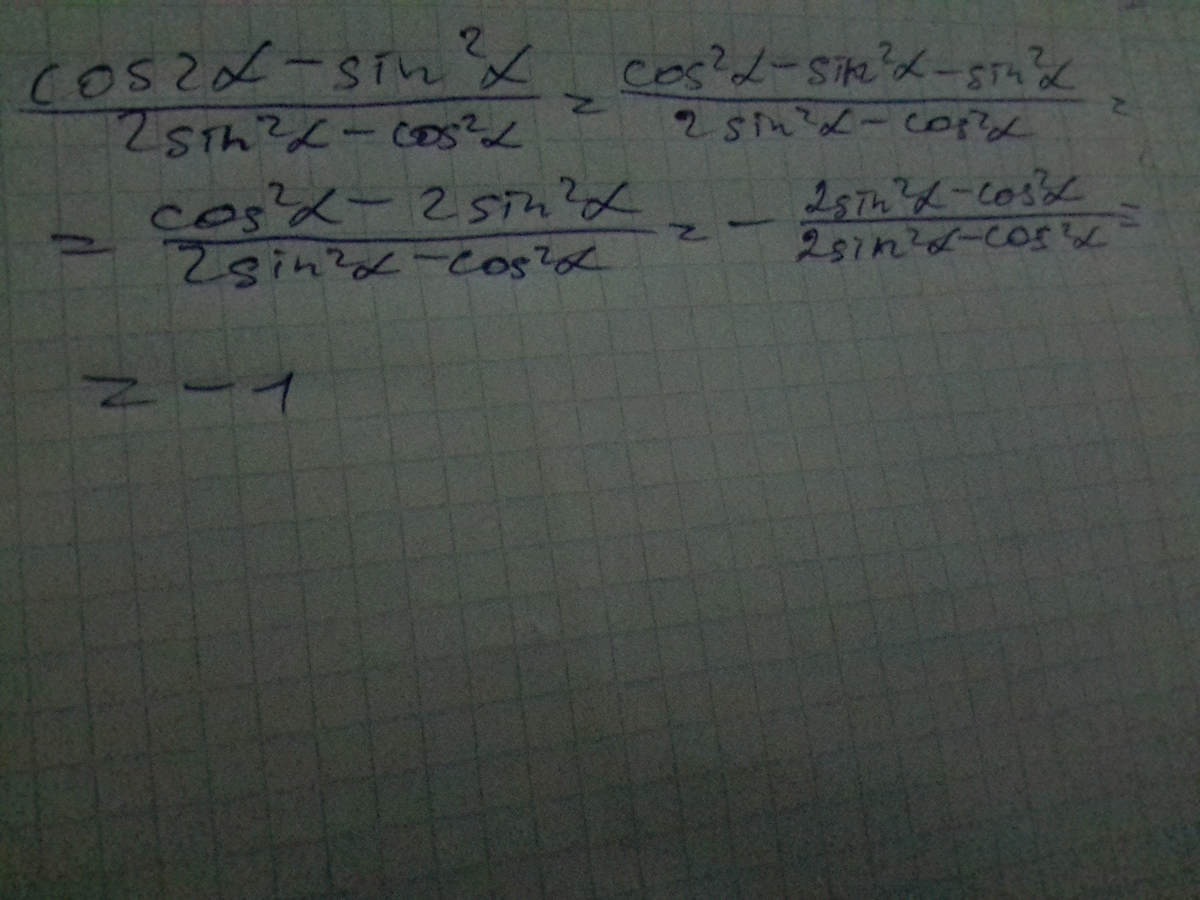 (cos2α − sin²α)/(2sin²α − cos²α) = (cos²α − sin²α − sin²α)/(2sin²α − cos²α) =
= (cos²α − 2sin²α)/(2sin²α − cos²α) = − (2sin²α − cos²α)/(2sin²α − cos²α) =
= −1